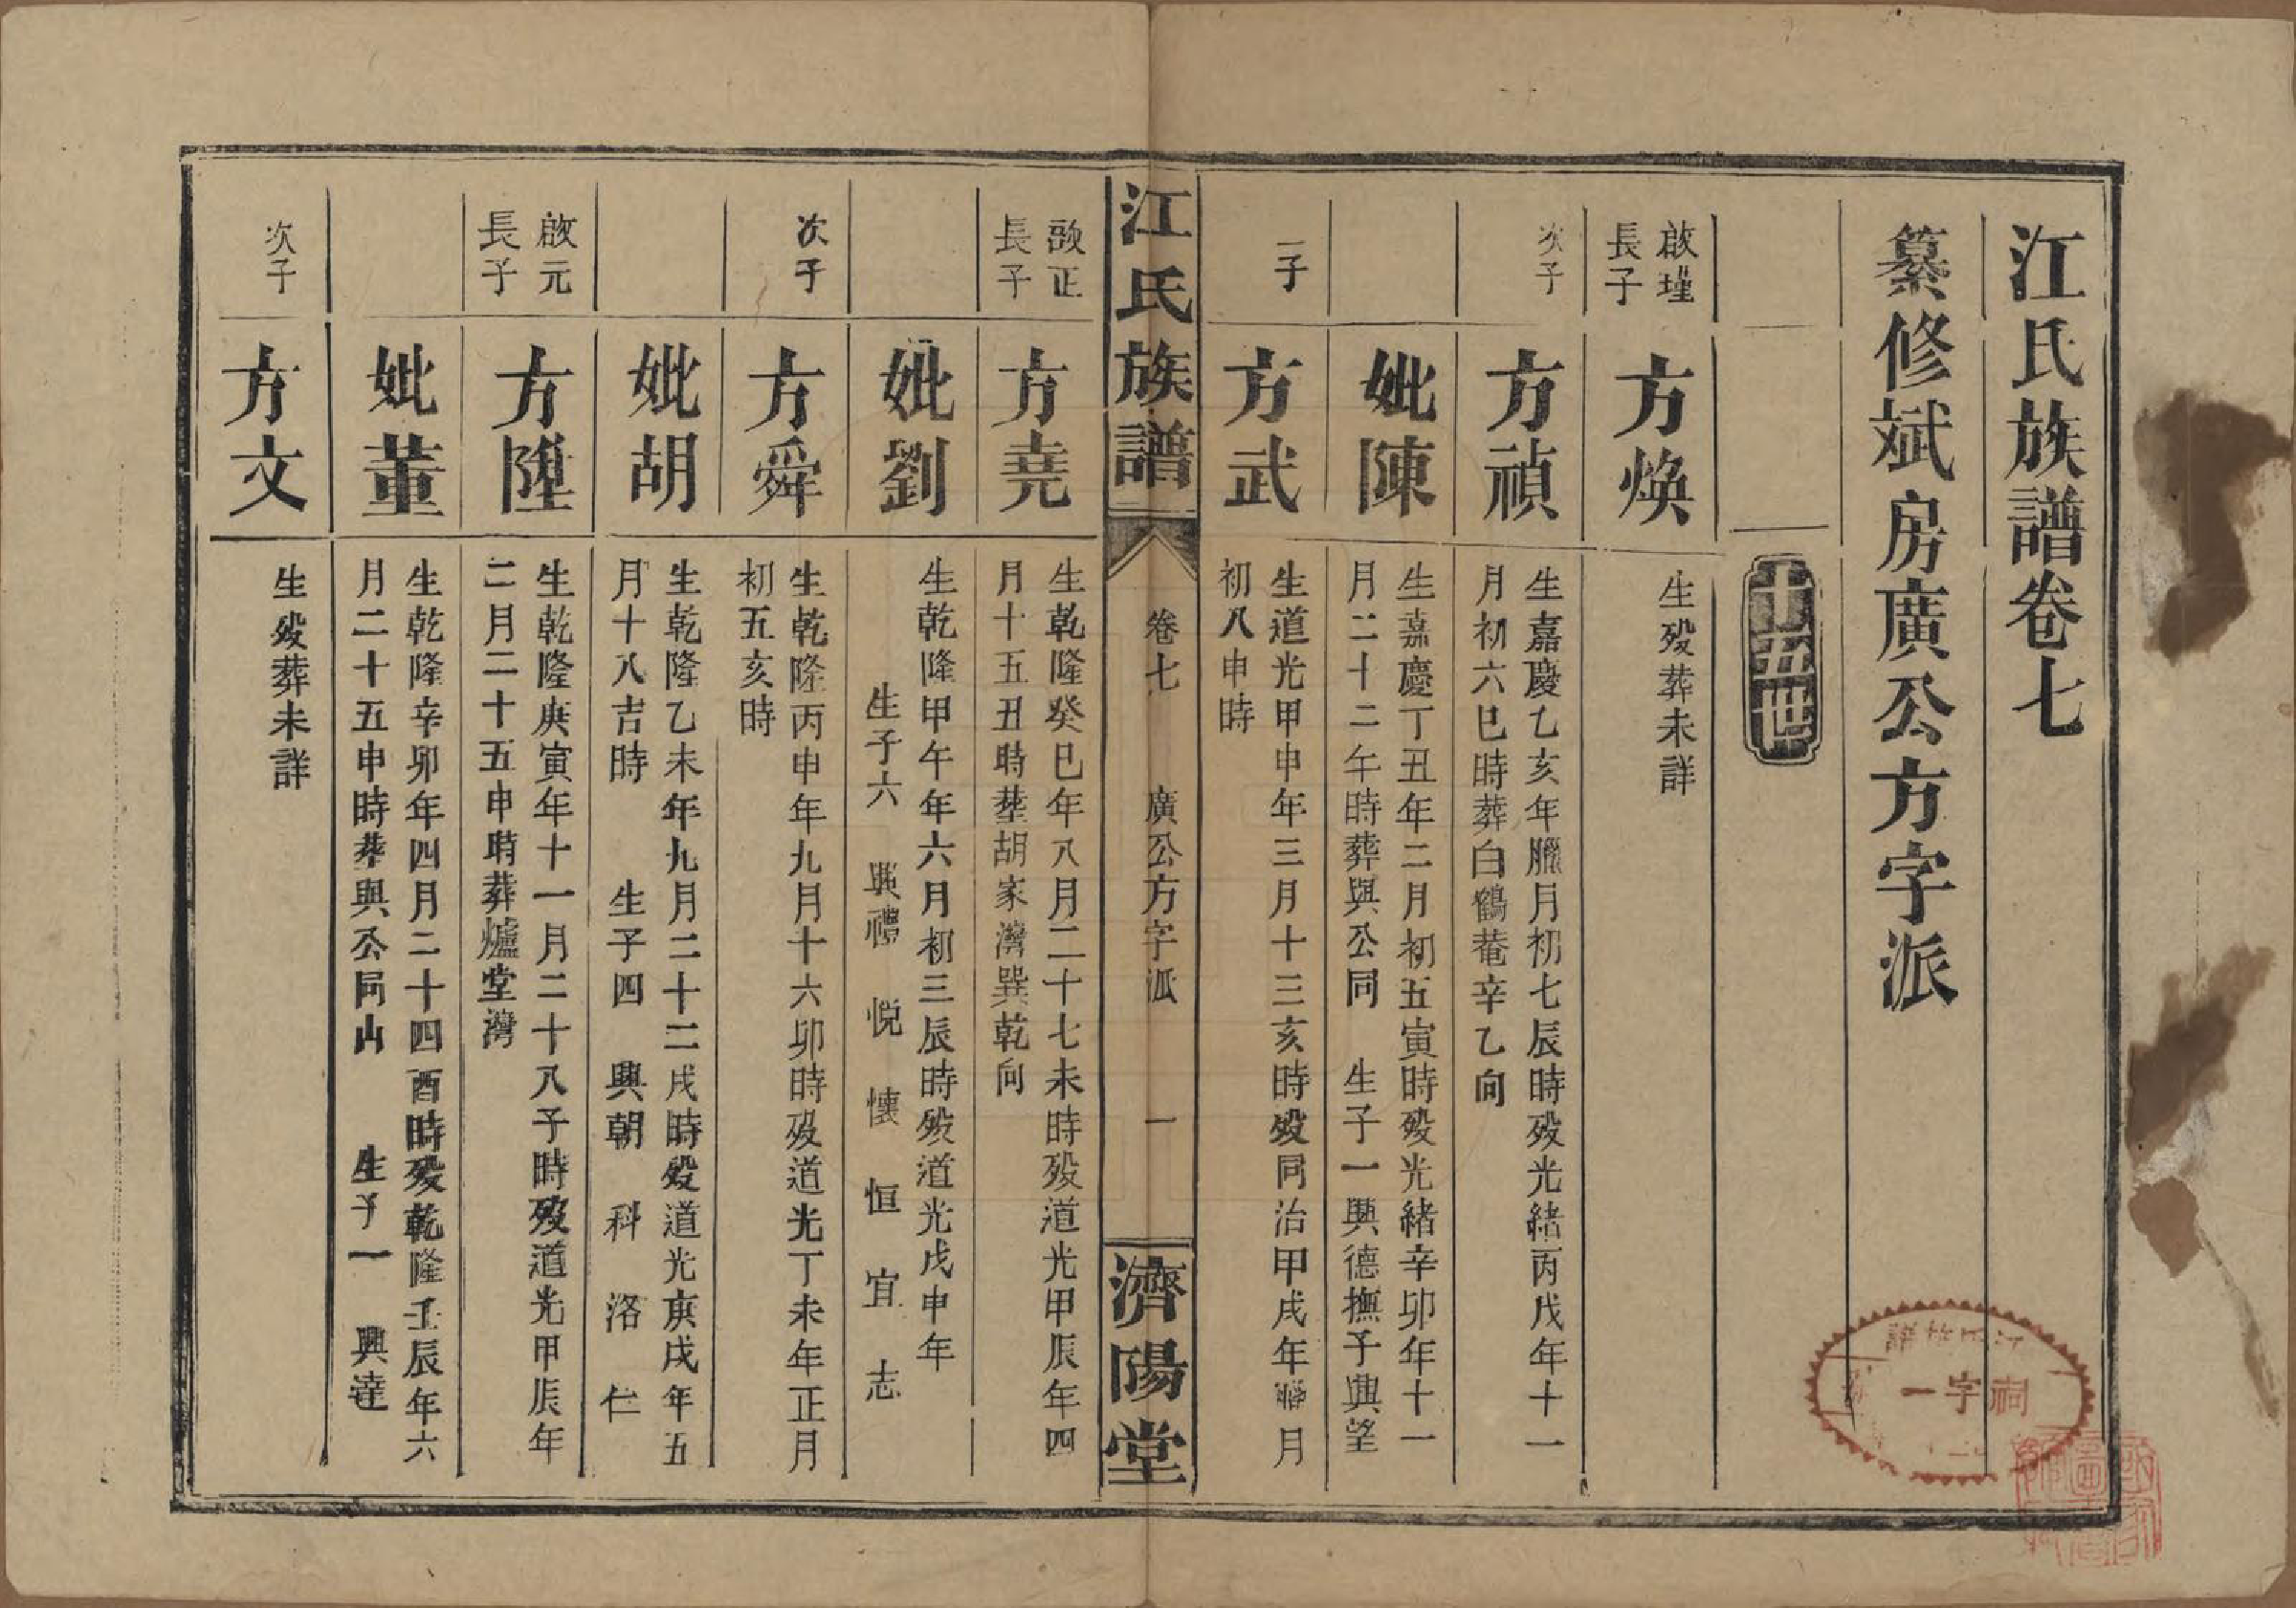 江氏族譜卷七
纂修斌房廣公方字派
十五世
啟瑾
長子
方煥
生歿葬未詳
次子
方禎
生嘉慶乙亥年臘月初七辰時歿光緒丙戌年十一
月初六巳時葬白鶴菴辛乙向
妣陳
生嘉慶丁丑年二月初五寅時歿光緒辛卯年十一
月二十二午時葬與公同 生子一興德撫子興望
三子
方武
生道光甲申年三月十三亥時歿同治甲戌年臘月
初八申時
江氏族譜
卷七 廣公方字派 一
濟陽堂
啟正
長子
方堯
生乾隆癸巳年八月二十七未時歿道光甲辰年四
月十五丑時塟胡家灣巽乾向
妣劉
生乾隆甲午年六月初三辰時歿道光戊申年
生子六 興禮 悅 懷 恒 宜 志
次子
方舜
生乾隆丙申年九月十六卯時歿道光丁未年正月
初五亥時
妣胡
生乾隆乙未年九月二十二戌時歿道光庚戌年五
月十八吉時 生子四 興朝 科 洛 仁
啟元
長子
方陞
生乾隆庚寅年十一月二十八子時歿道光甲辰年
二月二十五申時葬爐堂灣
妣董
生乾隆辛卯年四月二十四酉時歿乾隆壬辰年六
月二十五申時葬與公同山 生子一 興達
次子
方文
生歿葬未詳
祠字一